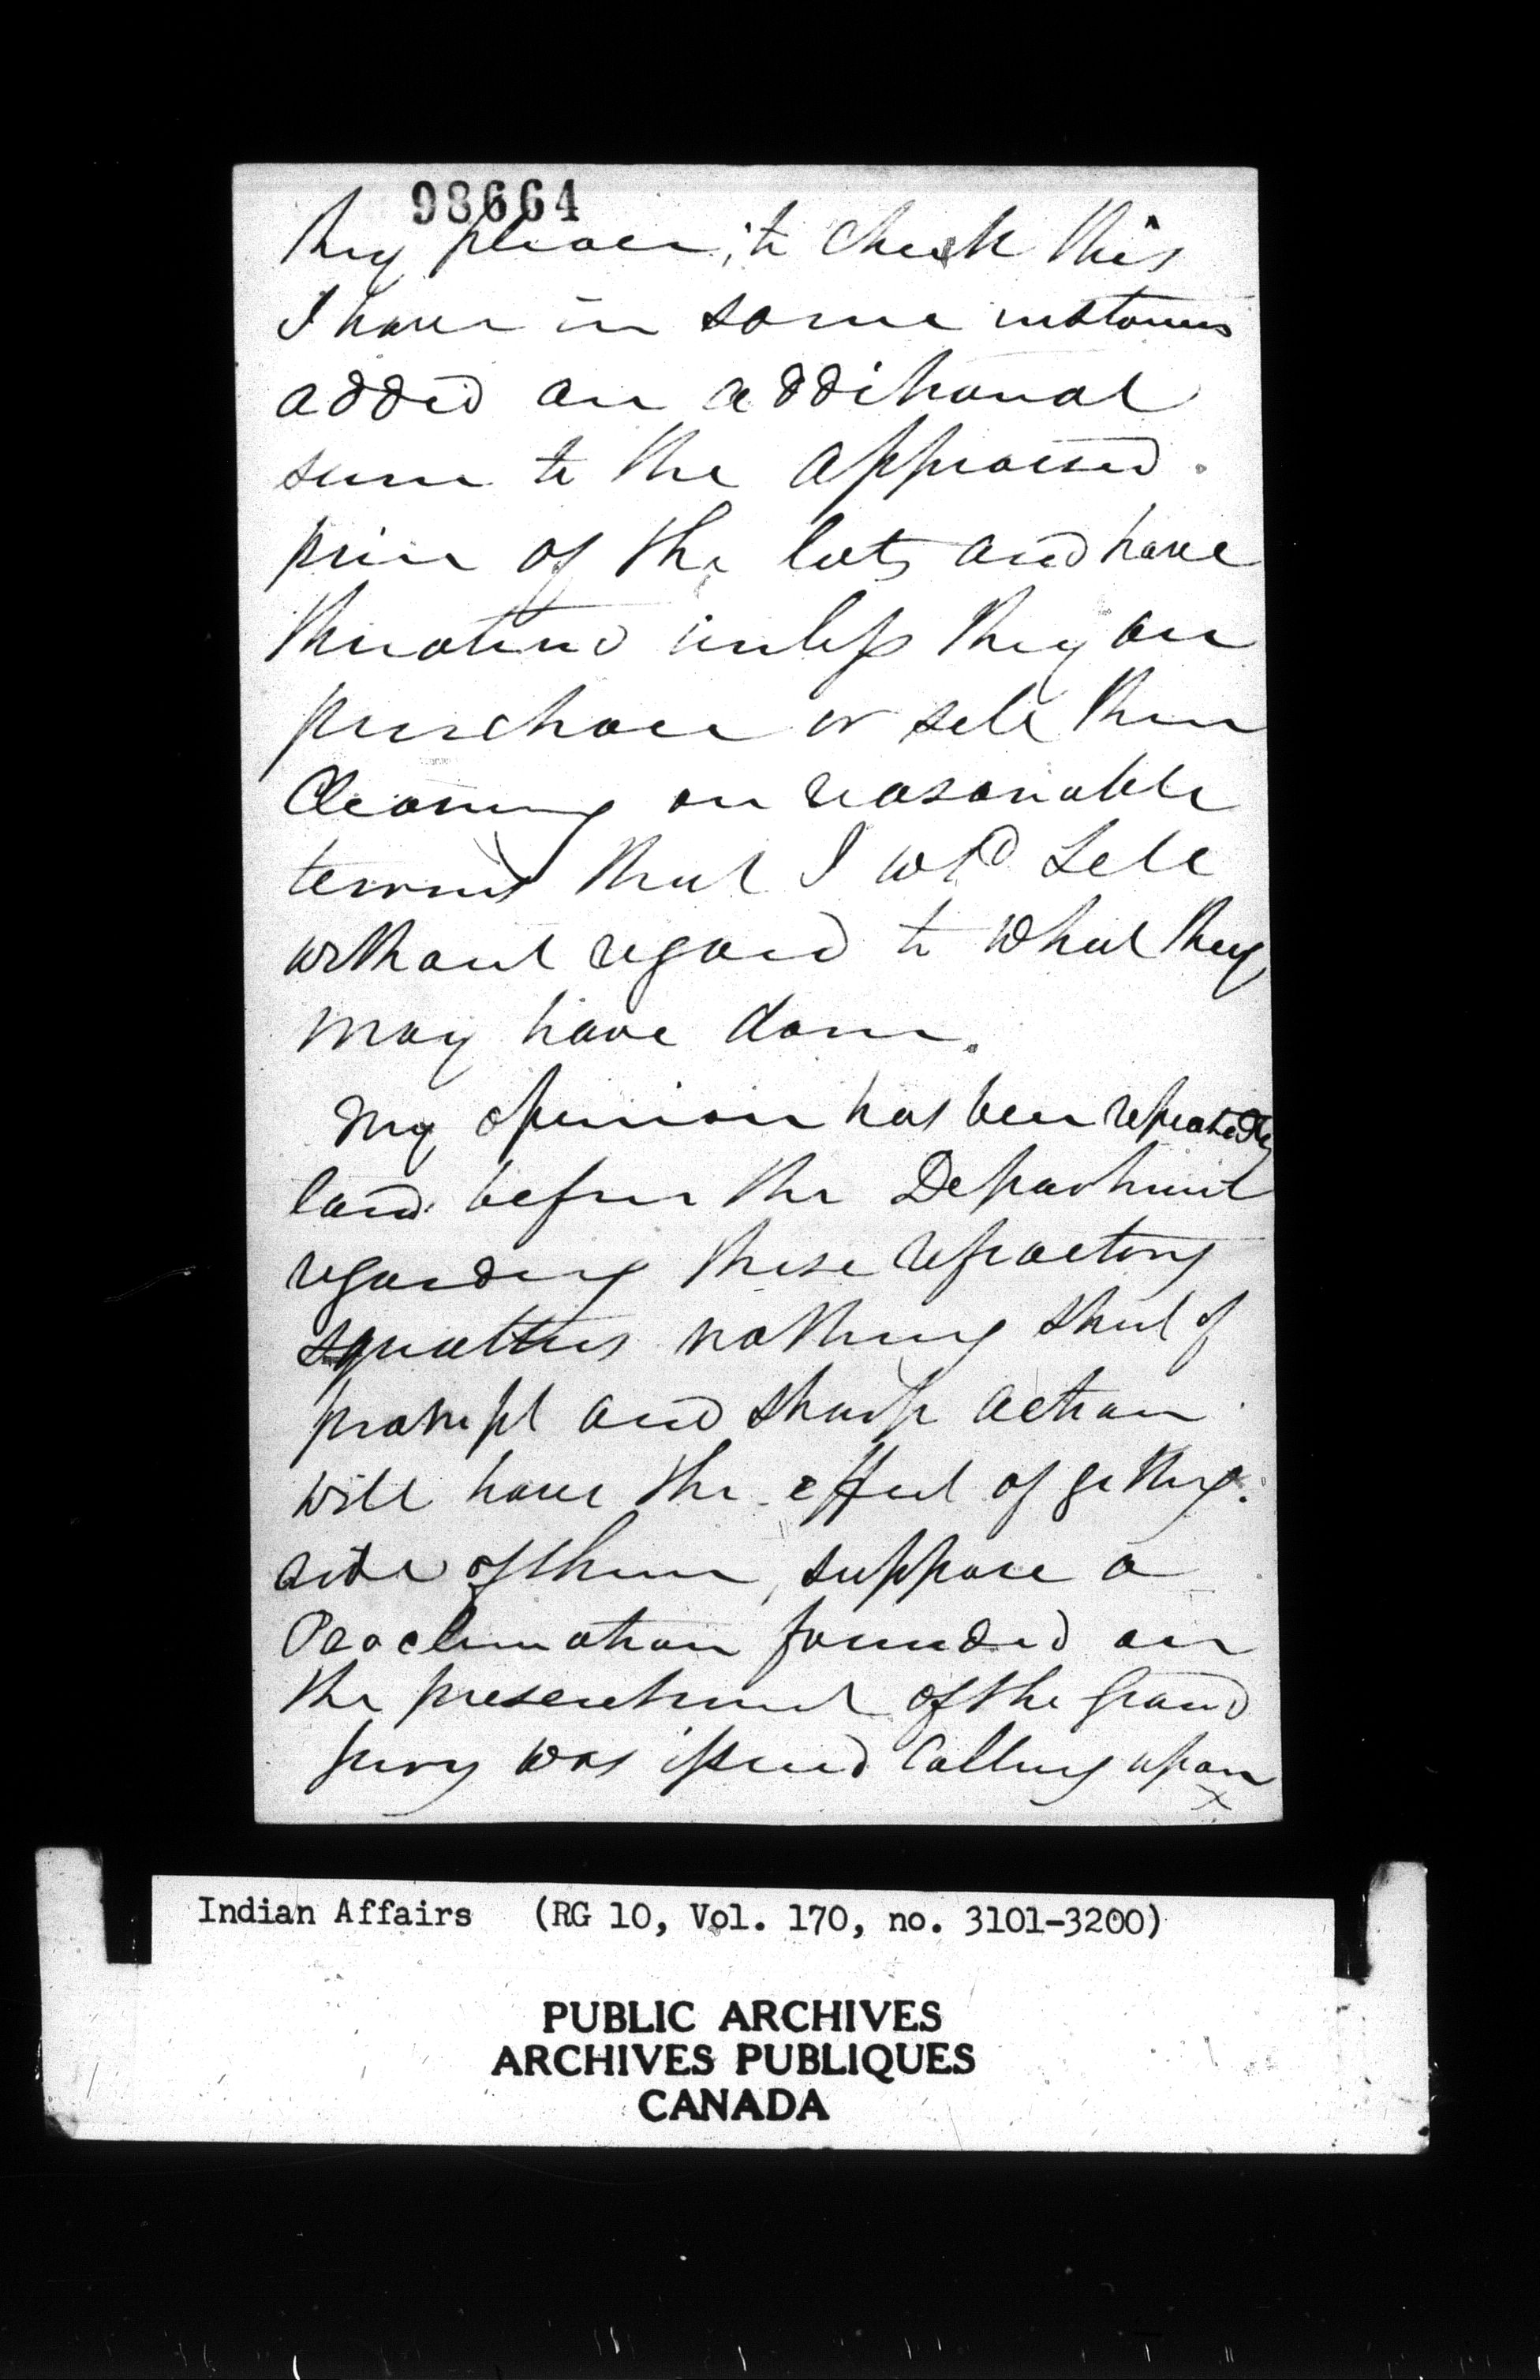 98664
they please, to check this
I have in some instances
added an additional
sum to the appraised
price of the lots and have
threatened unless they
purchase or sell their
Clearing on reasonable
terms that I wld sell
without regard to what they
may have done.
My opinion has been repeatedly
laid before the Department
regarding these refractory
squatters nothing short of
prompt and sharp action
will have the effect of getting
of them, suppose a
Proclamation founded on
the presentment of the Grand
Jury was issued Calling upon
Indian Affairs (RG 10, Vol. 170, no. 3101-3200)
PUBLIC ARCHIVES
ARCHIVES PUBLIQUES
CANADA